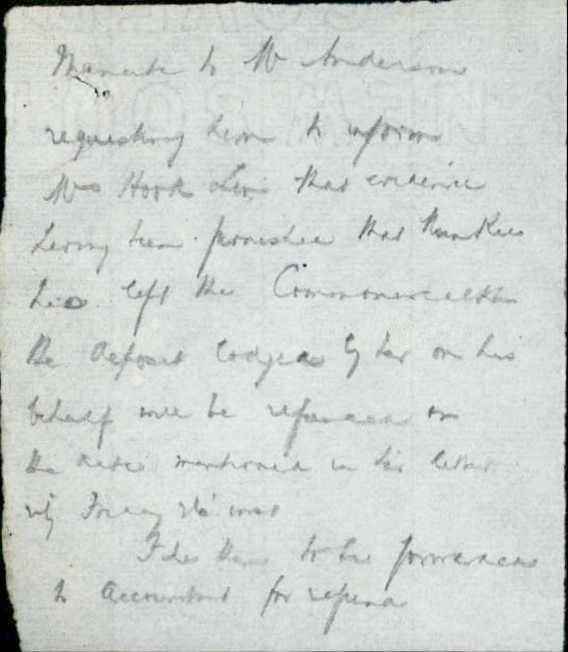 Minute to Mr Anderson
requesting him to inform
Mrs Hook Lin that evidence
having been furnished that Kum Kee
has left the Commonwealth
the deposit lodged by her on his
behalf will be refunded on
the date mentioned in her letter
viz Friday inst
File then to be forwarded
to Accountant for refund